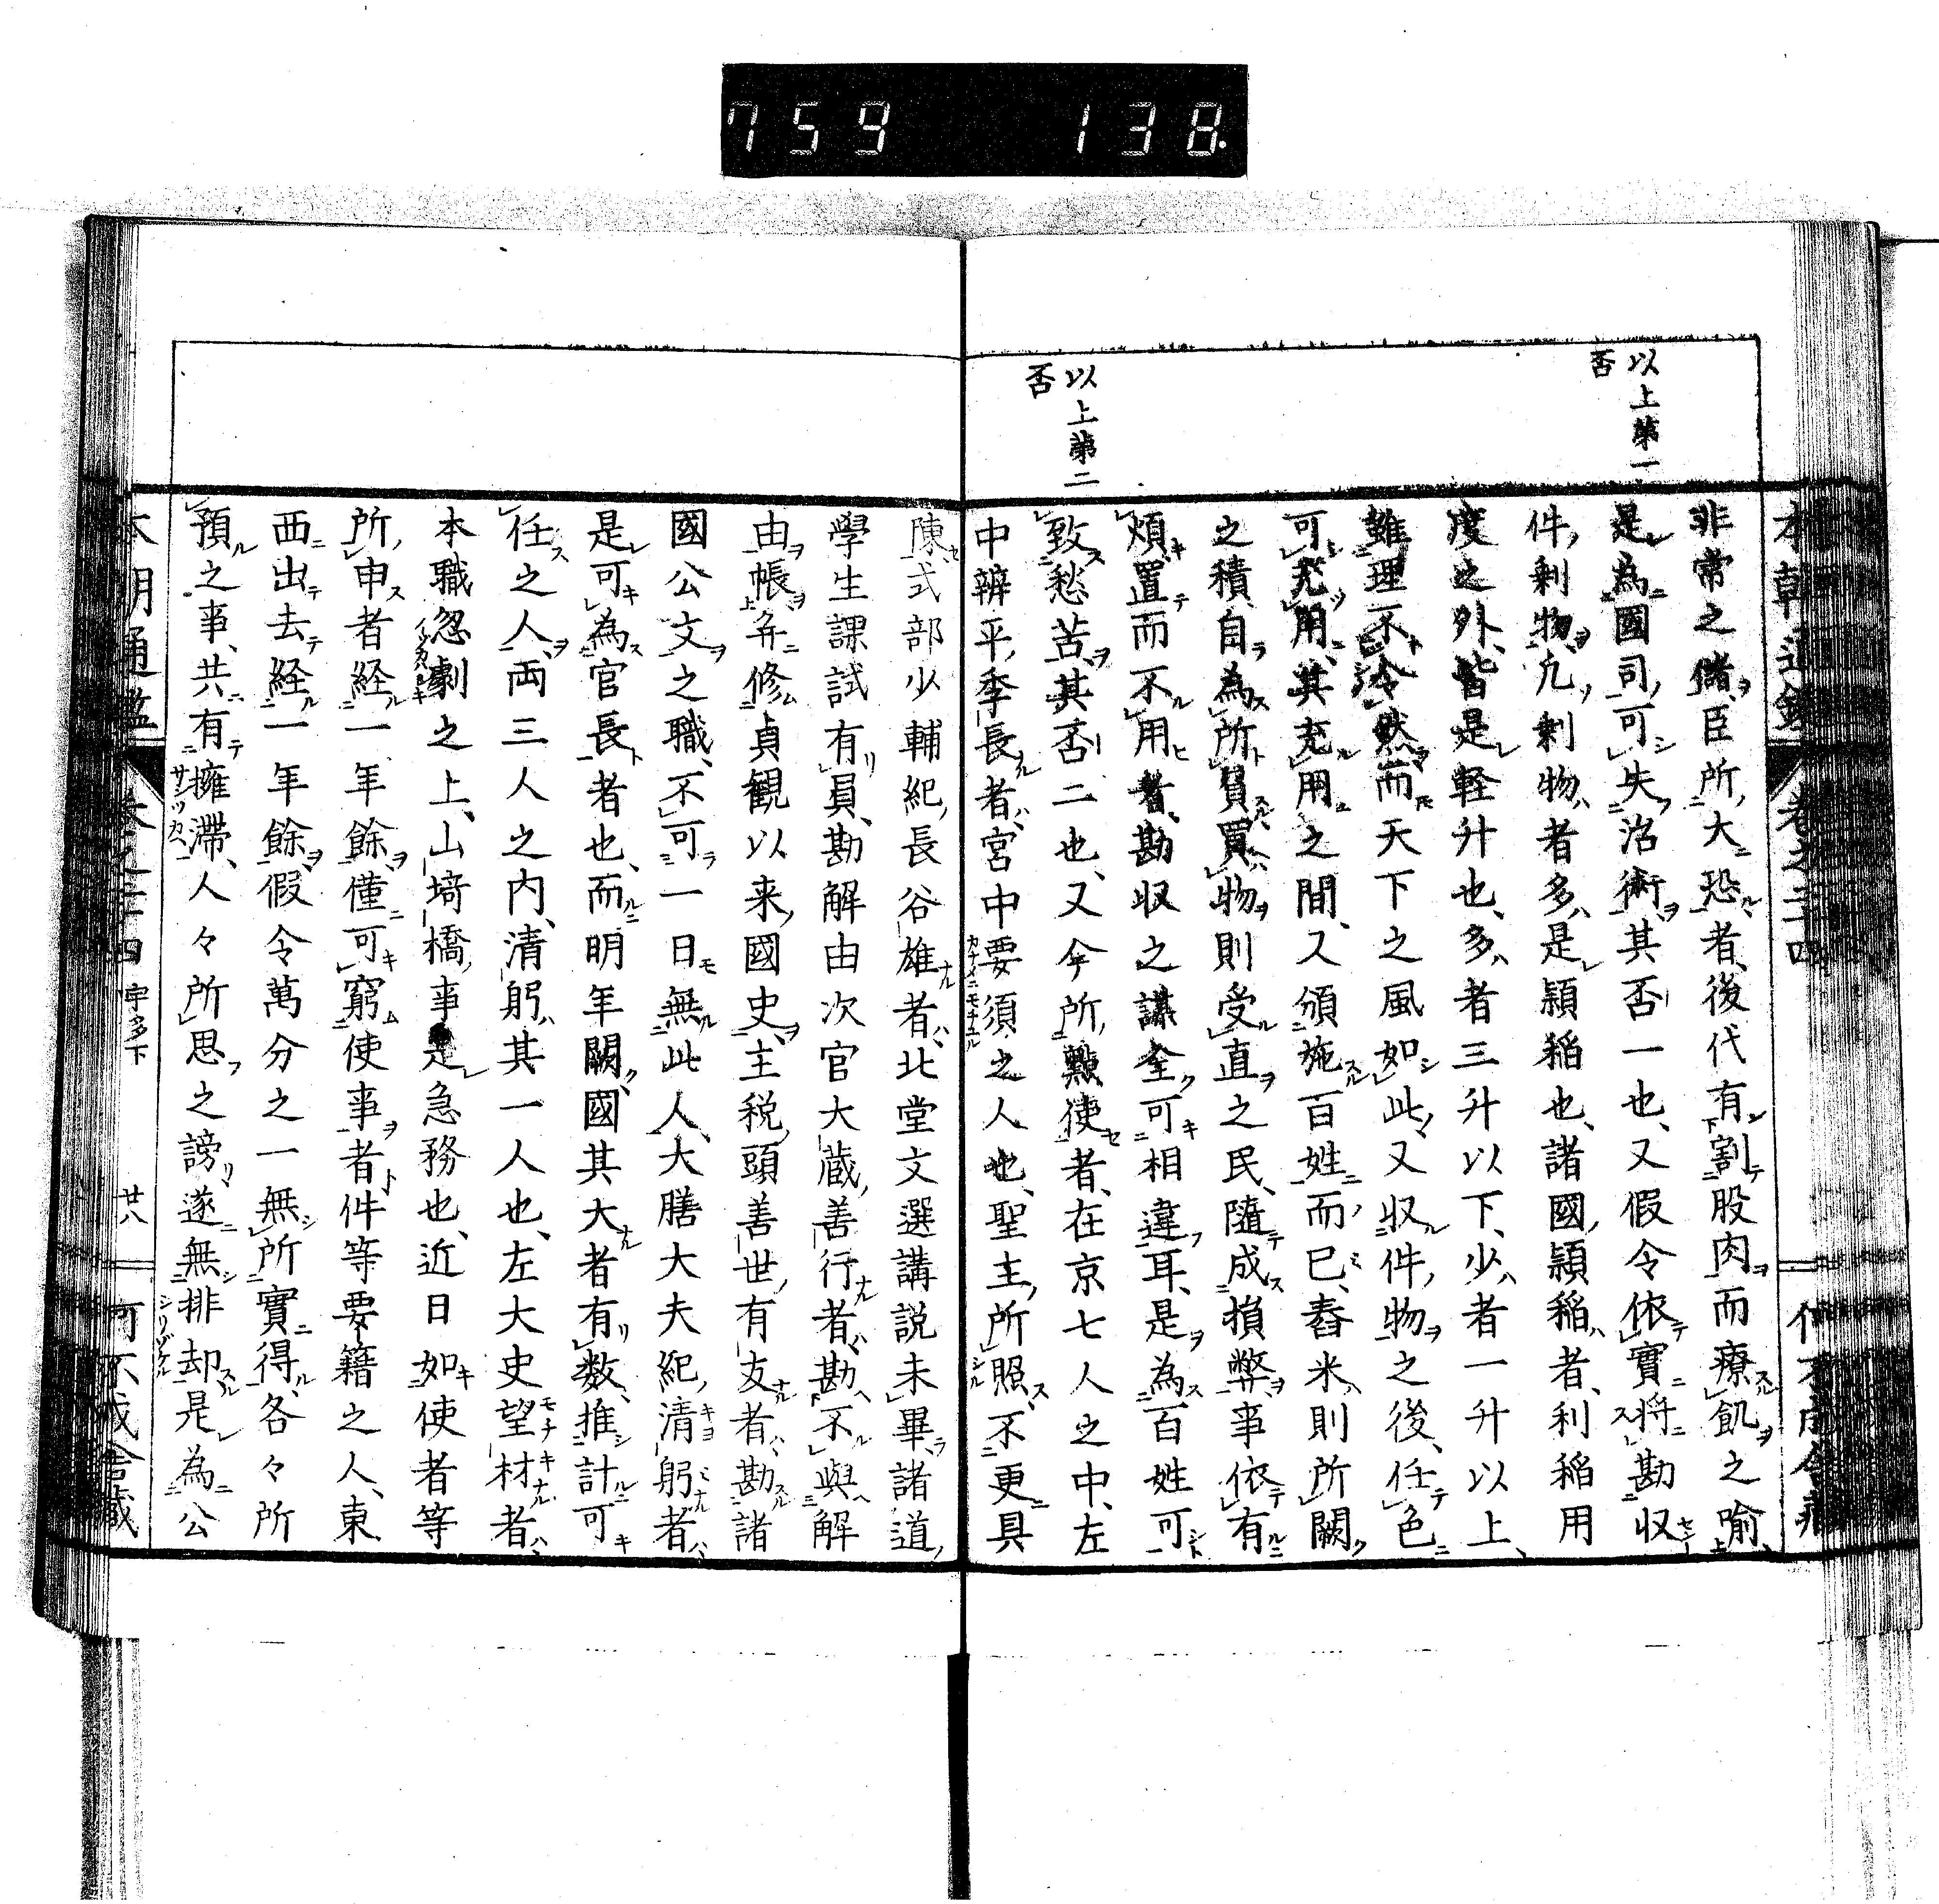 759 138.
本朝通鑑 卷之二十四
以上第一
否
非常之儲、臣所大恐者、後代有割股肉而療飢之喩、
是為國司可失治術、其否一也、又假令依實將勘収
件剰物、凢剰物者多、是穎稲也、諸國穎稲者、利稲用
度之外、皆是軽升也、多者三升以下、少者一升以上、
雖理不令然而天下之風如此、又収件物之後、任色
可充用、其充用之間、又頒施百姓而已、舂米則所闕
之積、自為所貿買物、則受直之民、隨成損弊、事依有
煩、置而不用者、勘収之議全可相違耳、是為百姓可
以上第二
否
致愁苦、其否二也、又今所㸃使者、在京七人之中、左
中辨平季長者、宮中要須之人也、聖主所照、不更具
陳、式部少輔紀長谷雄者、北堂文選講説未畢、諸道
學生課試有員、勘解由次官大蔵善行者、勘不與解
由帳并修貞観以来國史、主税頭善世有友者、勘諸
國公文之職、不可一日無此人、大膳大夫紀清躬者、
是可為官長者也、而明年闕國其大者有数、推計可
任之人、両三人之内、清躬其一人也、左大史望材者、
本職忽劇之上、山埼橋事是急務也、近日如使者等
所申者、経一年餘、僅可窮使事者、件等要籍之人、東
西出去経一年餘、假令萬分之一無所實得、各々所
預之事、共有擁滞、人々所思之謗、遂無排却、是為公
本朝通鑑 卷之二十四 宇多下 廿八